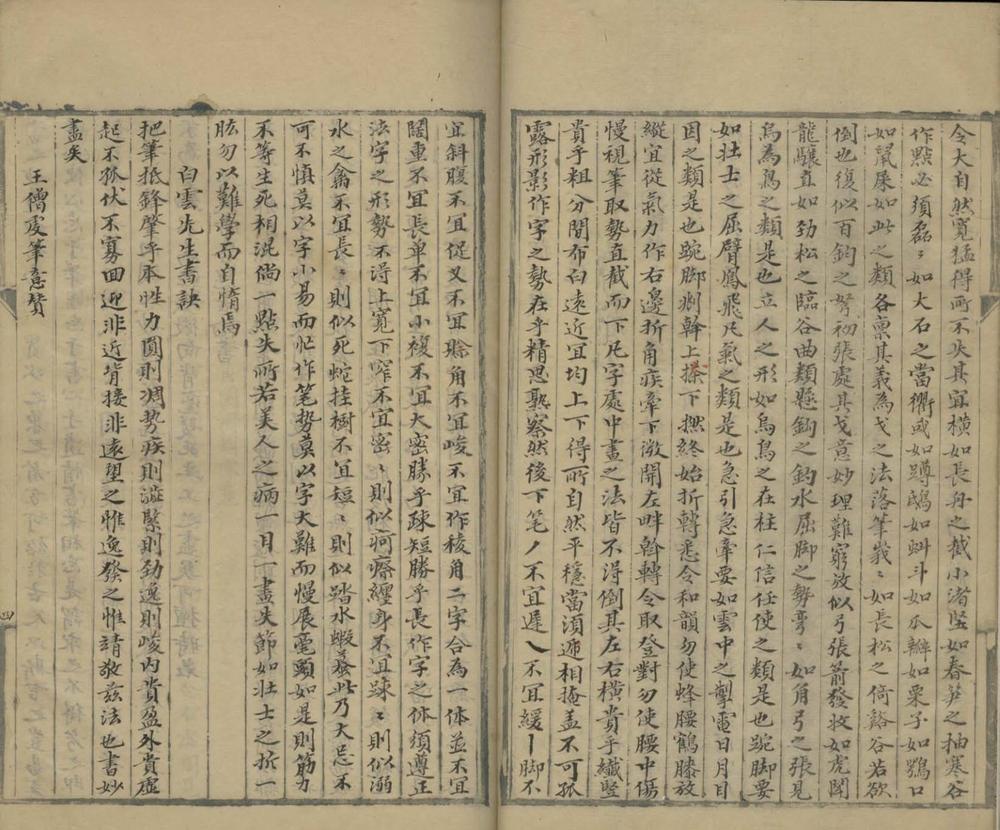 令大自然寛猛得所不失其宜橫如長舟之截小渚竪如春笋之抽寒谷
作點必須磊〻如大石之當衢或如蹲鴟如蚪斗如瓜瓣如栗子如鶚口
如鼠屎如此之類各禀其義為戈之法落筆峩〻如長松之倚谿谷若欲
倒也復似百鈞之弩初張處其戈意妙理難窮放似弓張箭發收如虎鬥
龍驤直如勁松之臨谷曲類懸鈎之釣水屈脚之勢亭〻如角弓之張見
烏為鳥之類是也立人之形如鳥鳥之在柱仁信任使之類是也踠脚要
如壯士之屈臂鳳飛凡氣之類是也急引急牽要如雲中之掣電日月目
因之類是也踠脚㓨斡上捺下撚終始折轉悉令和韻勿使蜂腰鶴膝放
縱宜從氣力作右邊折角疾牽下微開左畔斡轉令取登對勿使腰中傷
慢視筆取勢直截而下凡字處中畫之法皆不得倒其左右橫貴乎纎竪
貴乎粗分間布白遠近宜均上下得所自然平穩當須遞相掩盖不可孤
露形影作字之勢在乎精思熟察然後下笔丿不宜遲乀不宜緩丨脚不
宜斜腹不宜促又不宜賒角不宜峻不宜作稜角二字合為一体並不宜
闊重不宜長单不宜小複不宜大密勝乎疎短勝乎長作字之体須遵正
法字之形勢不得上寛下窄不宜密〻則似疴瘵纏身不宜疎〻則似溺
水之禽不宜長〻則似死蛇挂樹不宜短〻則似踏水蝦蟇此乃大忌不
可不慎莫以字小易而忙作笔勢莫以字大難而慢展毫頭如是則筋力
不等生死相混倘一點失所若美人之病一目一畫失節如壯士之折一
肱勿以難學而自惰焉
白雲先生書訣
把筆抵鋒肇乎本性力圓則凋勢疾則澁緊則勁逸則峻内貴盈外貴虛
起不孤伏不寡回迎非近背接非遠望之惟逸發之惟靖敬兹法也書妙
盡矣
王僧虔筆意賛
四